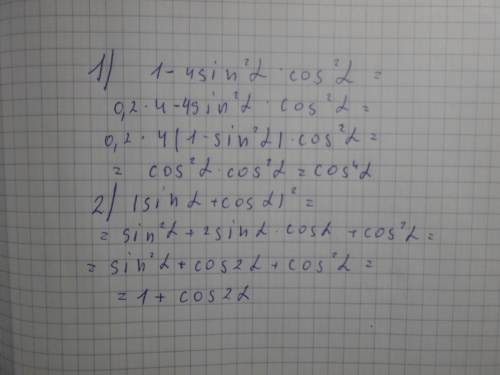 1) 1-4sin²α·cos²α=
0,2·4-4sin²α·cos²α=
0,2·4(1-sin²α)·cos²α=
= cos²α·cos²α=cos⁴α
2) (sinα+cosα)²=
=sin²α+2sinα·cosα+cos²α=
=sin²α+cos2α+cos²α=
=1+cos2α